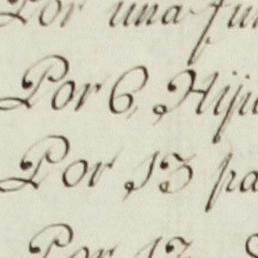 Por una fu
Por 6, Hiju
Por 13 pa
Por 13